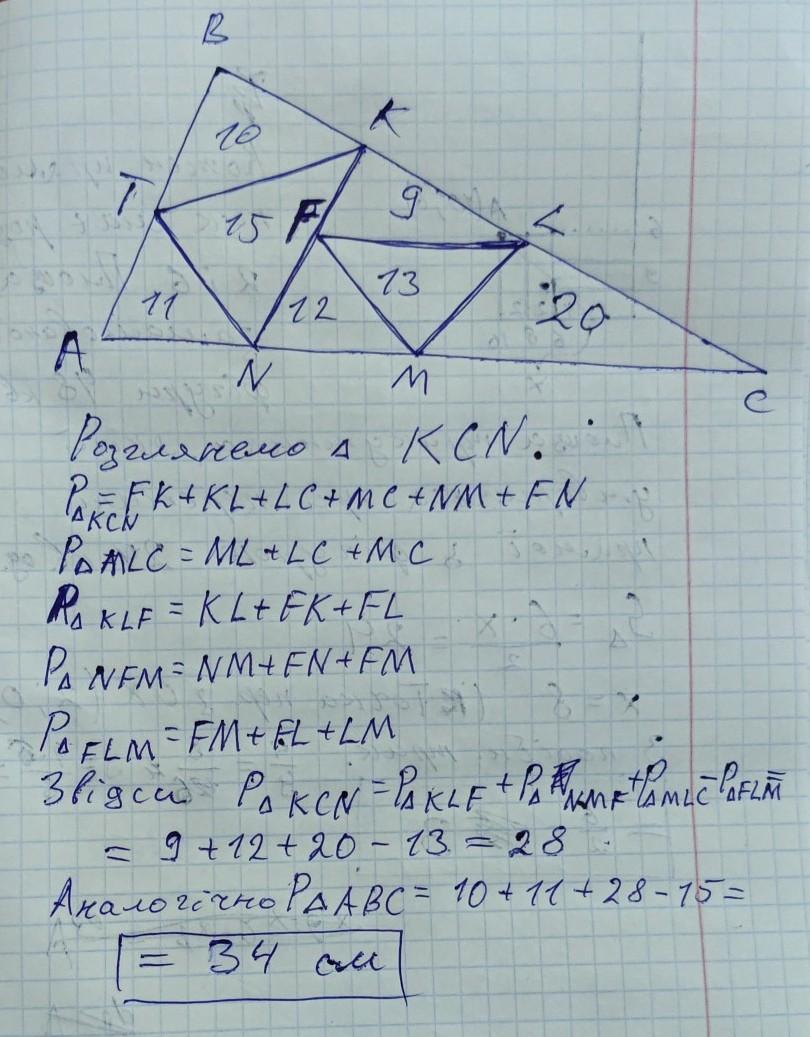 B
10
K
T
15
F
9
L
11
12
13
20
A
N
M
C
Розглянемо Δ KCN.
PΔKCN = FK+KL+LC+MC+NM+FN
PΔMLC = ML+LC+MC
PΔKLF = KL+FK+FL
PΔNFM = NM+FN+FM
PΔFLM = FM+FL+LM
Звідси PΔKCN = PΔKLF + PΔNMF + PΔMLC - PΔFLM =
= 9+12+20-13 = 28
Аналогічно PΔABC = 10+11+28-15 =
= 34 см